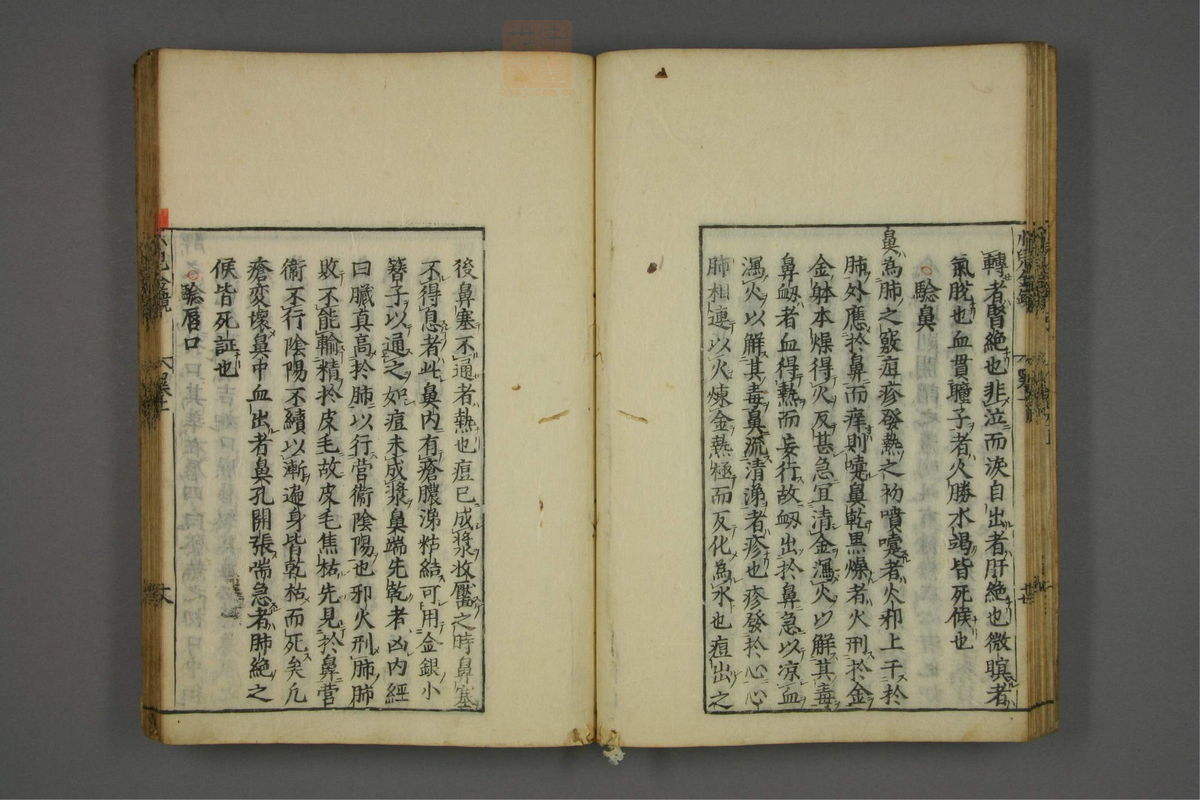 轉者腎絶也悲泣而淚自出者肝絶也微瞑者
氣脫也血貫瞳子者火勝水竭皆死候也
驗鼻
鼻為肺之竅疽疹發熱之初噴嚏者火邪上干於
肺外應於鼻而痒則嚏鼻乾黒燥者火刑於金
金躰本燥得火反甚急宜清金瀉火以解其毒
鼻衂者血得熱而妄行故衂出於鼻急以凉血
瀉火以解其毒鼻流清涕者疹也疹發於心心
肺相連以火煉金熱極而反化為水也痘出之
後鼻塞不通者熱也痘已成漿收靨之時鼻塞
不得息者此鼻內有瘡膿涕粘結可用金銀小
簪子以通之如痘未成漿鼻端先乾者凶内經
曰臓真高於肺以行营衞陰陽也邪火刑肺肺
敗不能輸精於皮毛故皮毛焦枯先見於鼻营
衞不行陰陽不續以漸遍身皆乾枯而死矣凡
瘡変壊鼻中血出者鼻孔開張喘急者肺絶之
候皆死証也
驗唇口